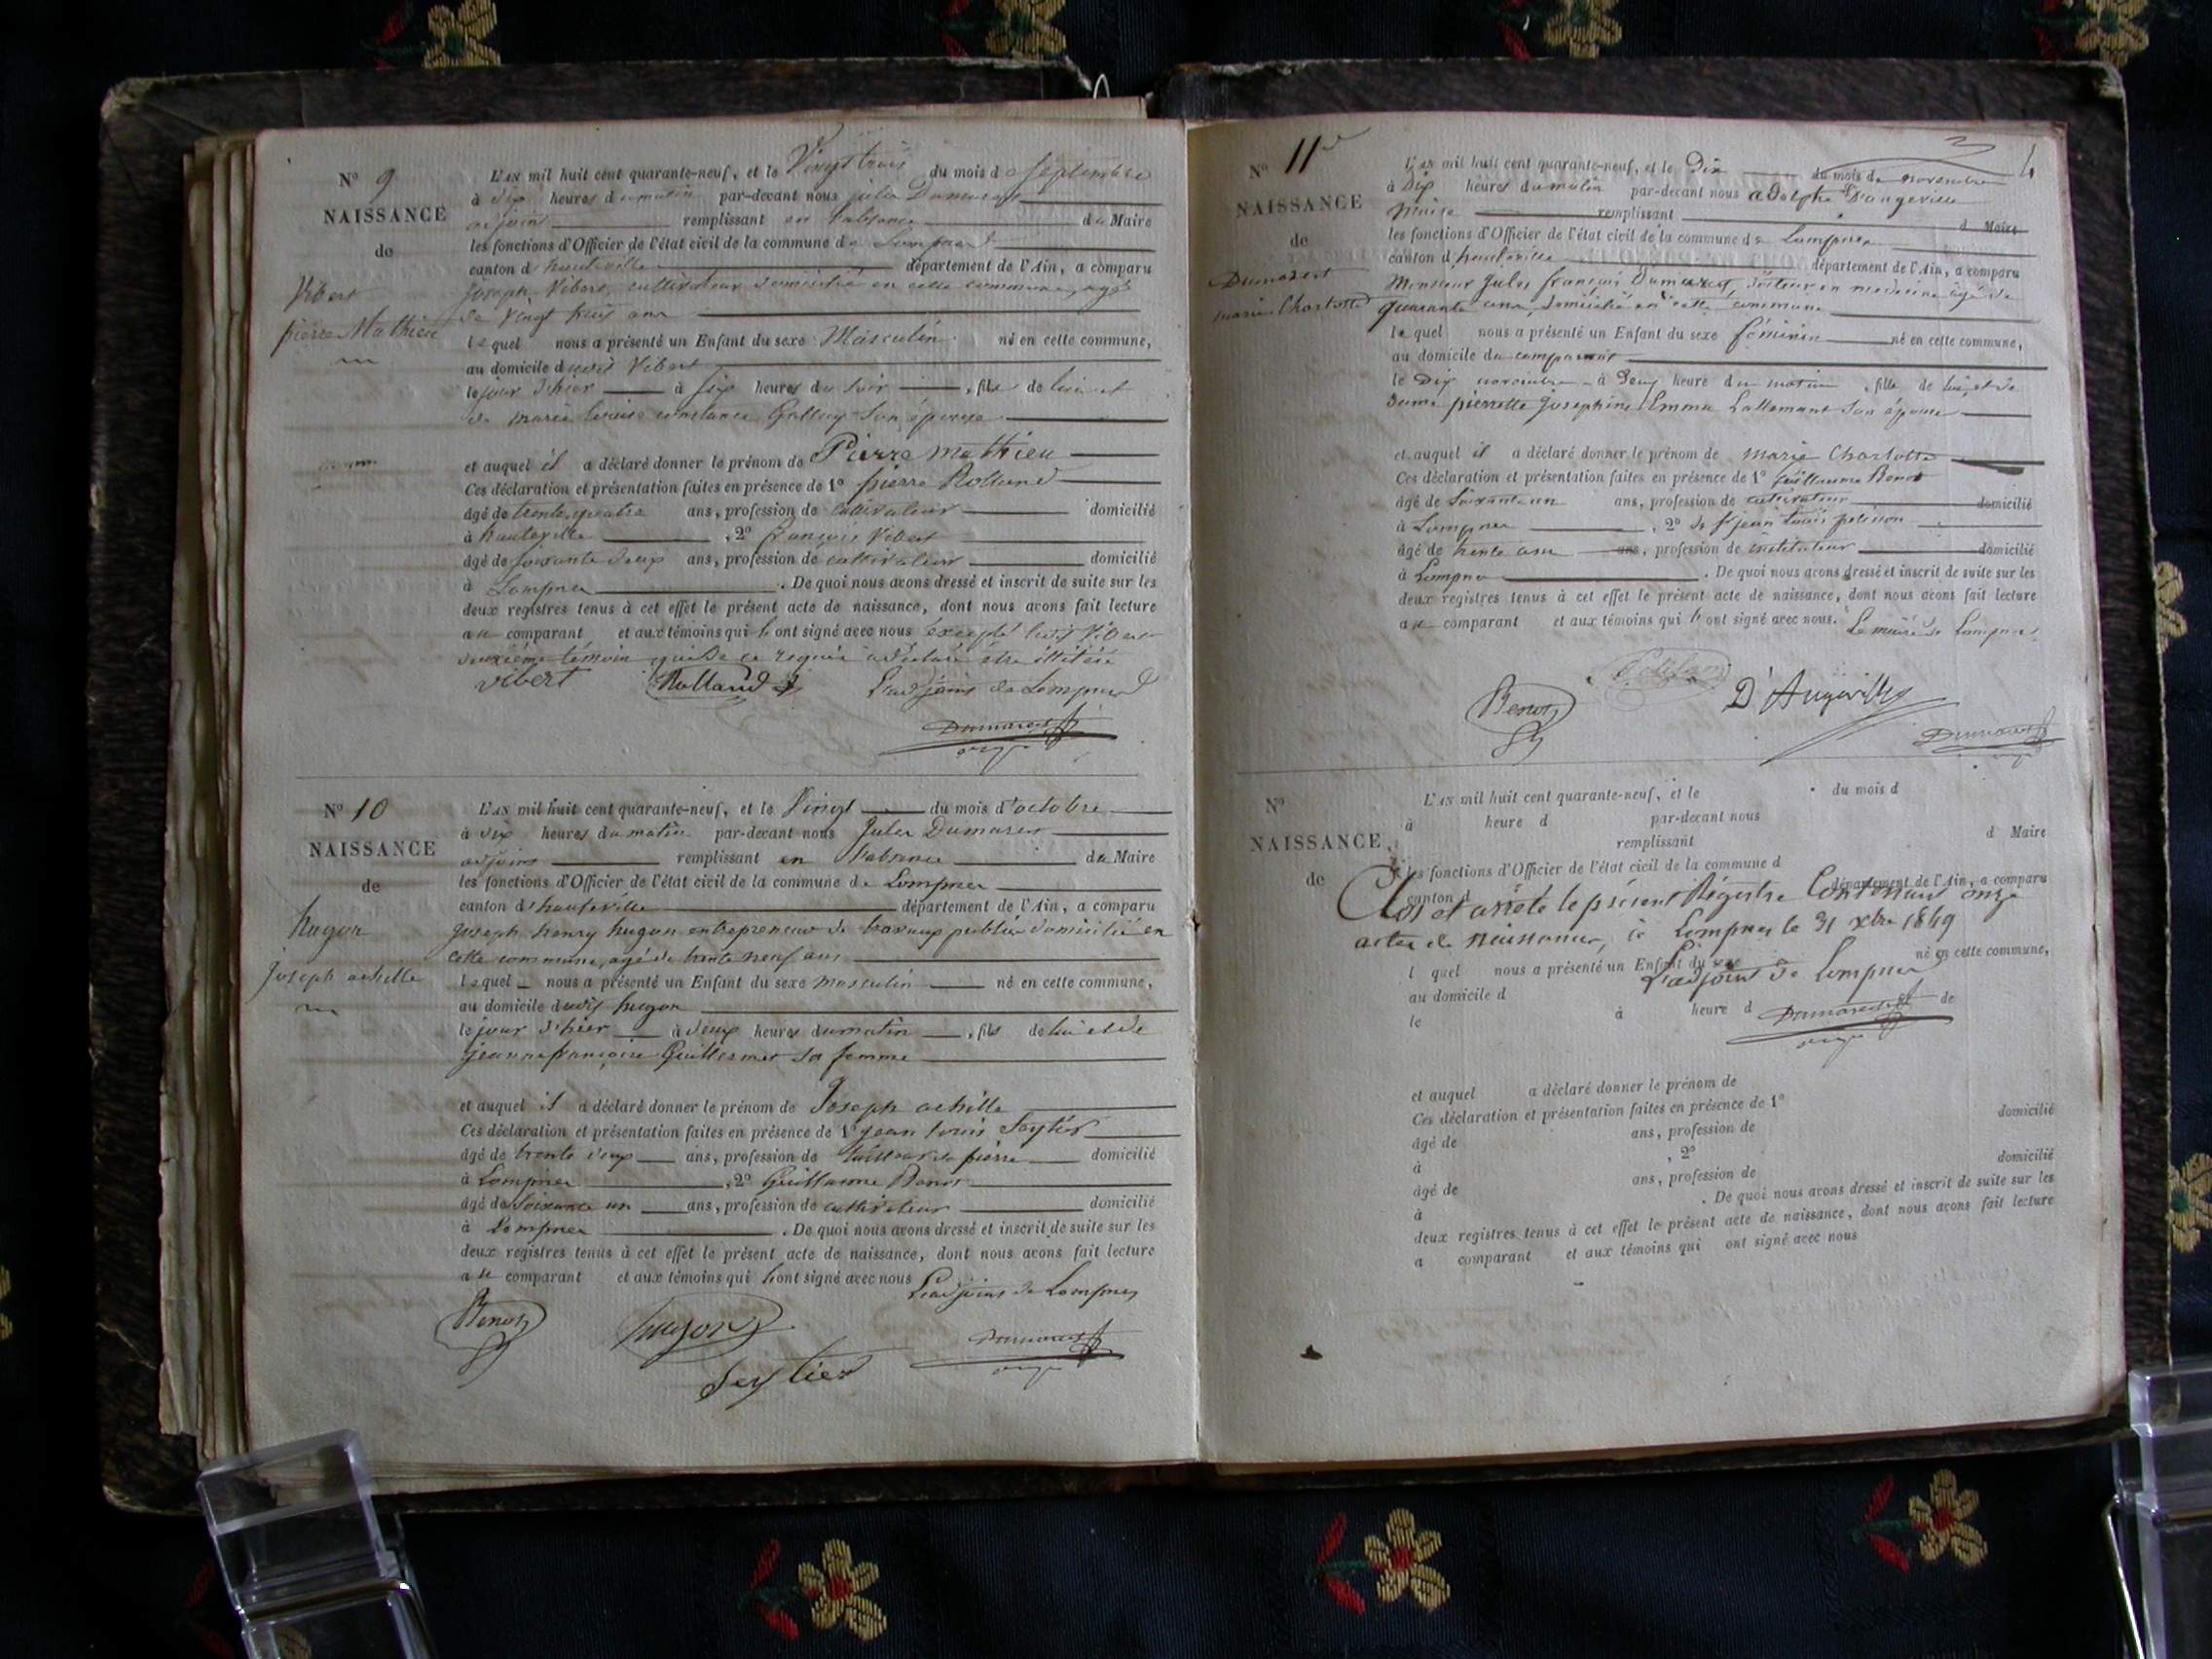 N° 9
NAISSANCE
de
Vibert
pierre Mathieu
L'AN mil huit cent quarante-neuf, et le Vingt trois du mois de Septembre
à dix heures du matin par-devant nous jules Dumarest
adjoint remplissant en l'absence du Maire
les fonctions d'Officier de l'état civil de la commune de Lompnes
canton d'hauteville département de l'Ain, a comparu
Joseph Vibert, cultivateur domicilié en cette commune, agé
de vingt huit ans
lequel nous a présenté un Enfant du sexe Masculin né en cette commune,
au domicile dudit Vibert
le jour d'hier à six heures du soir, fils de lui et
de marie louise constance son épouse
et auquel il a déclaré donner le prénom de Pierre mathieu
Ces déclaration et présentation faites en présence de 1° pierre Rolland
âgé de trente quatre ans, profession de cultivateur domicilié
à hauteville, 2° françois Vibert
âgé de soixante deux ans, profession de cultivateur domicilié
à Lompnes. De quoi nous avons dressé et inscrit de suite sur les
deux registres tenus à cet effet le présent acte de naissance, dont nous avons fait lecture
au comparant et aux témoins qui l'ont signé avec nous excepté ledit Vibert
deuxième témoin qui de ce requis a déclaré être illitéré
Vibert Rolland L'adjoint de Lompnes
Dumarest
N° 10
NAISSANCE
de
hugon
Joseph achille
L'AN mil huit cent quarante-neuf, et le Vingt du mois d'octobre
à dix heures du matin par-devant nous Jules Dumarest
adjoint remplissant en l'absence du Maire
les fonctions d'Officier de l'état civil de la commune de Lompnes
canton d'hauteville département de l'Ain, a comparu
Joseph henry hugon entrepreneur de travaux publics domicilié en
cette commune, agé de trente neuf ans
lequel nous a présenté un Enfant du sexe masculin né en cette commune,
au domicile dudit hugon
le jour d'hier à deux heures du matin, fils de lui et de
jeanne françoise Guillermet sa femme
et auquel il a déclaré donner le prénom de Joseph achille
Ces déclaration et présentation faites en présence de 1° jean louis Seytier
âgé de trente deux ans, profession de tailleur de pierre domicilié
à Lompnes, 2° Guillaume Benot
âgé de soixante un ans, profession de cultivateur domicilié
à Lompnes. De quoi nous avons dressé et inscrit de suite sur les
deux registres tenus à cet effet le présent acte de naissance, dont nous avons fait lecture
au comparant et aux témoins qui l'ont signé avec nous L'adjoint de Lompnes
Benot hugon Dumarest
Seytier
N° 11
NAISSANCE
de
Dumarest
marie Charlotte
L'AN mil huit cent quarante-neuf, et le Dix du mois de novembre
à Dix heures du matin par-devant nous adolphe D'angeville
Maire remplissant d Maire
les fonctions d'Officier de l'état civil de la commune de Lompnes
canton d'hauteville département de l'Ain, a comparu
Monsieur Jules françois Dumarest, docteur en medecine agé de
quarante ans, domicilié en cette commune
lequel nous a présenté un Enfant du sexe féminin né en cette commune,
au domicile du comparant
le Dix novembre à deux heure du matin, fille de lui, et de
dame pierrette Josephine Emma Lallemant son épouse
et auquel il a déclaré donner le prénom de marie Charlotte
Ces déclaration et présentation faites en présence de 1° Guillaume Benot
âgé de soixante un ans, profession de cultivateur domicilié
à Lompnes, 2° de jean Louis
âgé de trente ans, profession de instituteur domicilié
à Lompnes. De quoi nous avons dressé et inscrit de suite sur les
deux registres tenus à cet effet le présent acte de naissance, dont nous avons fait lecture
au comparant et aux témoins qui l'ont signé avec nous. Le maire de Lompnes
Benot D'Angeville
Dumarest
N°
NAISSANCE
de
L'AN mil huit cent quarante-neuf, et le du mois d
à heure d par-devant nous
remplissant d Maire
les fonctions d'Officier de l'état civil de la commune d
canton d département de l'Ain, a comparu
Clos et arrêté le présent Régistre Contenant onze
actes de Naissance, à Lompnes le 31 xbre 1849
l quel nous a présenté un Enfant du sexe né en cette commune,
L'adjoint de Lompnes
au domicile d
le à heure d de
Dumarest
et auquel a déclaré donner le prénom de
Ces déclaration et présentation faites en présence de 1°
âgé de ans, profession de domicilié
à , 2°
âgé de ans, profession de domicilié
à . De quoi nous avons dressé et inscrit de suite sur les
deux registres tenus à cet effet le présent acte de naissance, dont nous avons fait lecture
a comparant et aux témoins qui ont signé avec nous